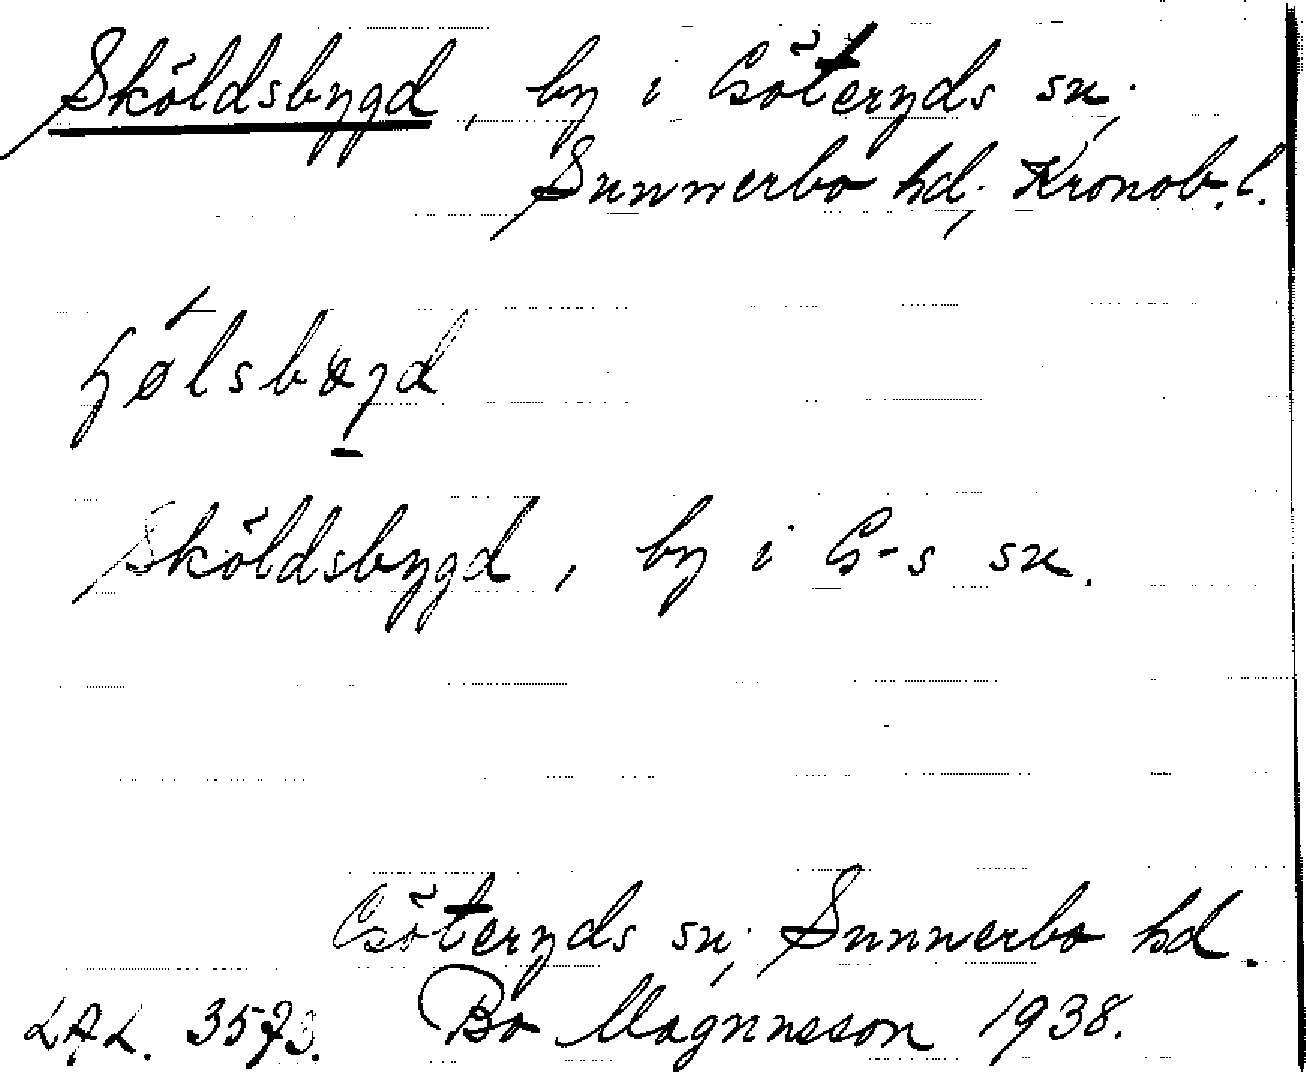 Sköldsbygd, by i Göteryds sn,
Sunnerbo hd, Kronob. l.
Sköldsbygd, by i G-s sn.
Göteryds sn, Sunnerbo hd.
LAL. 3573. Bo Magnusson 1938.